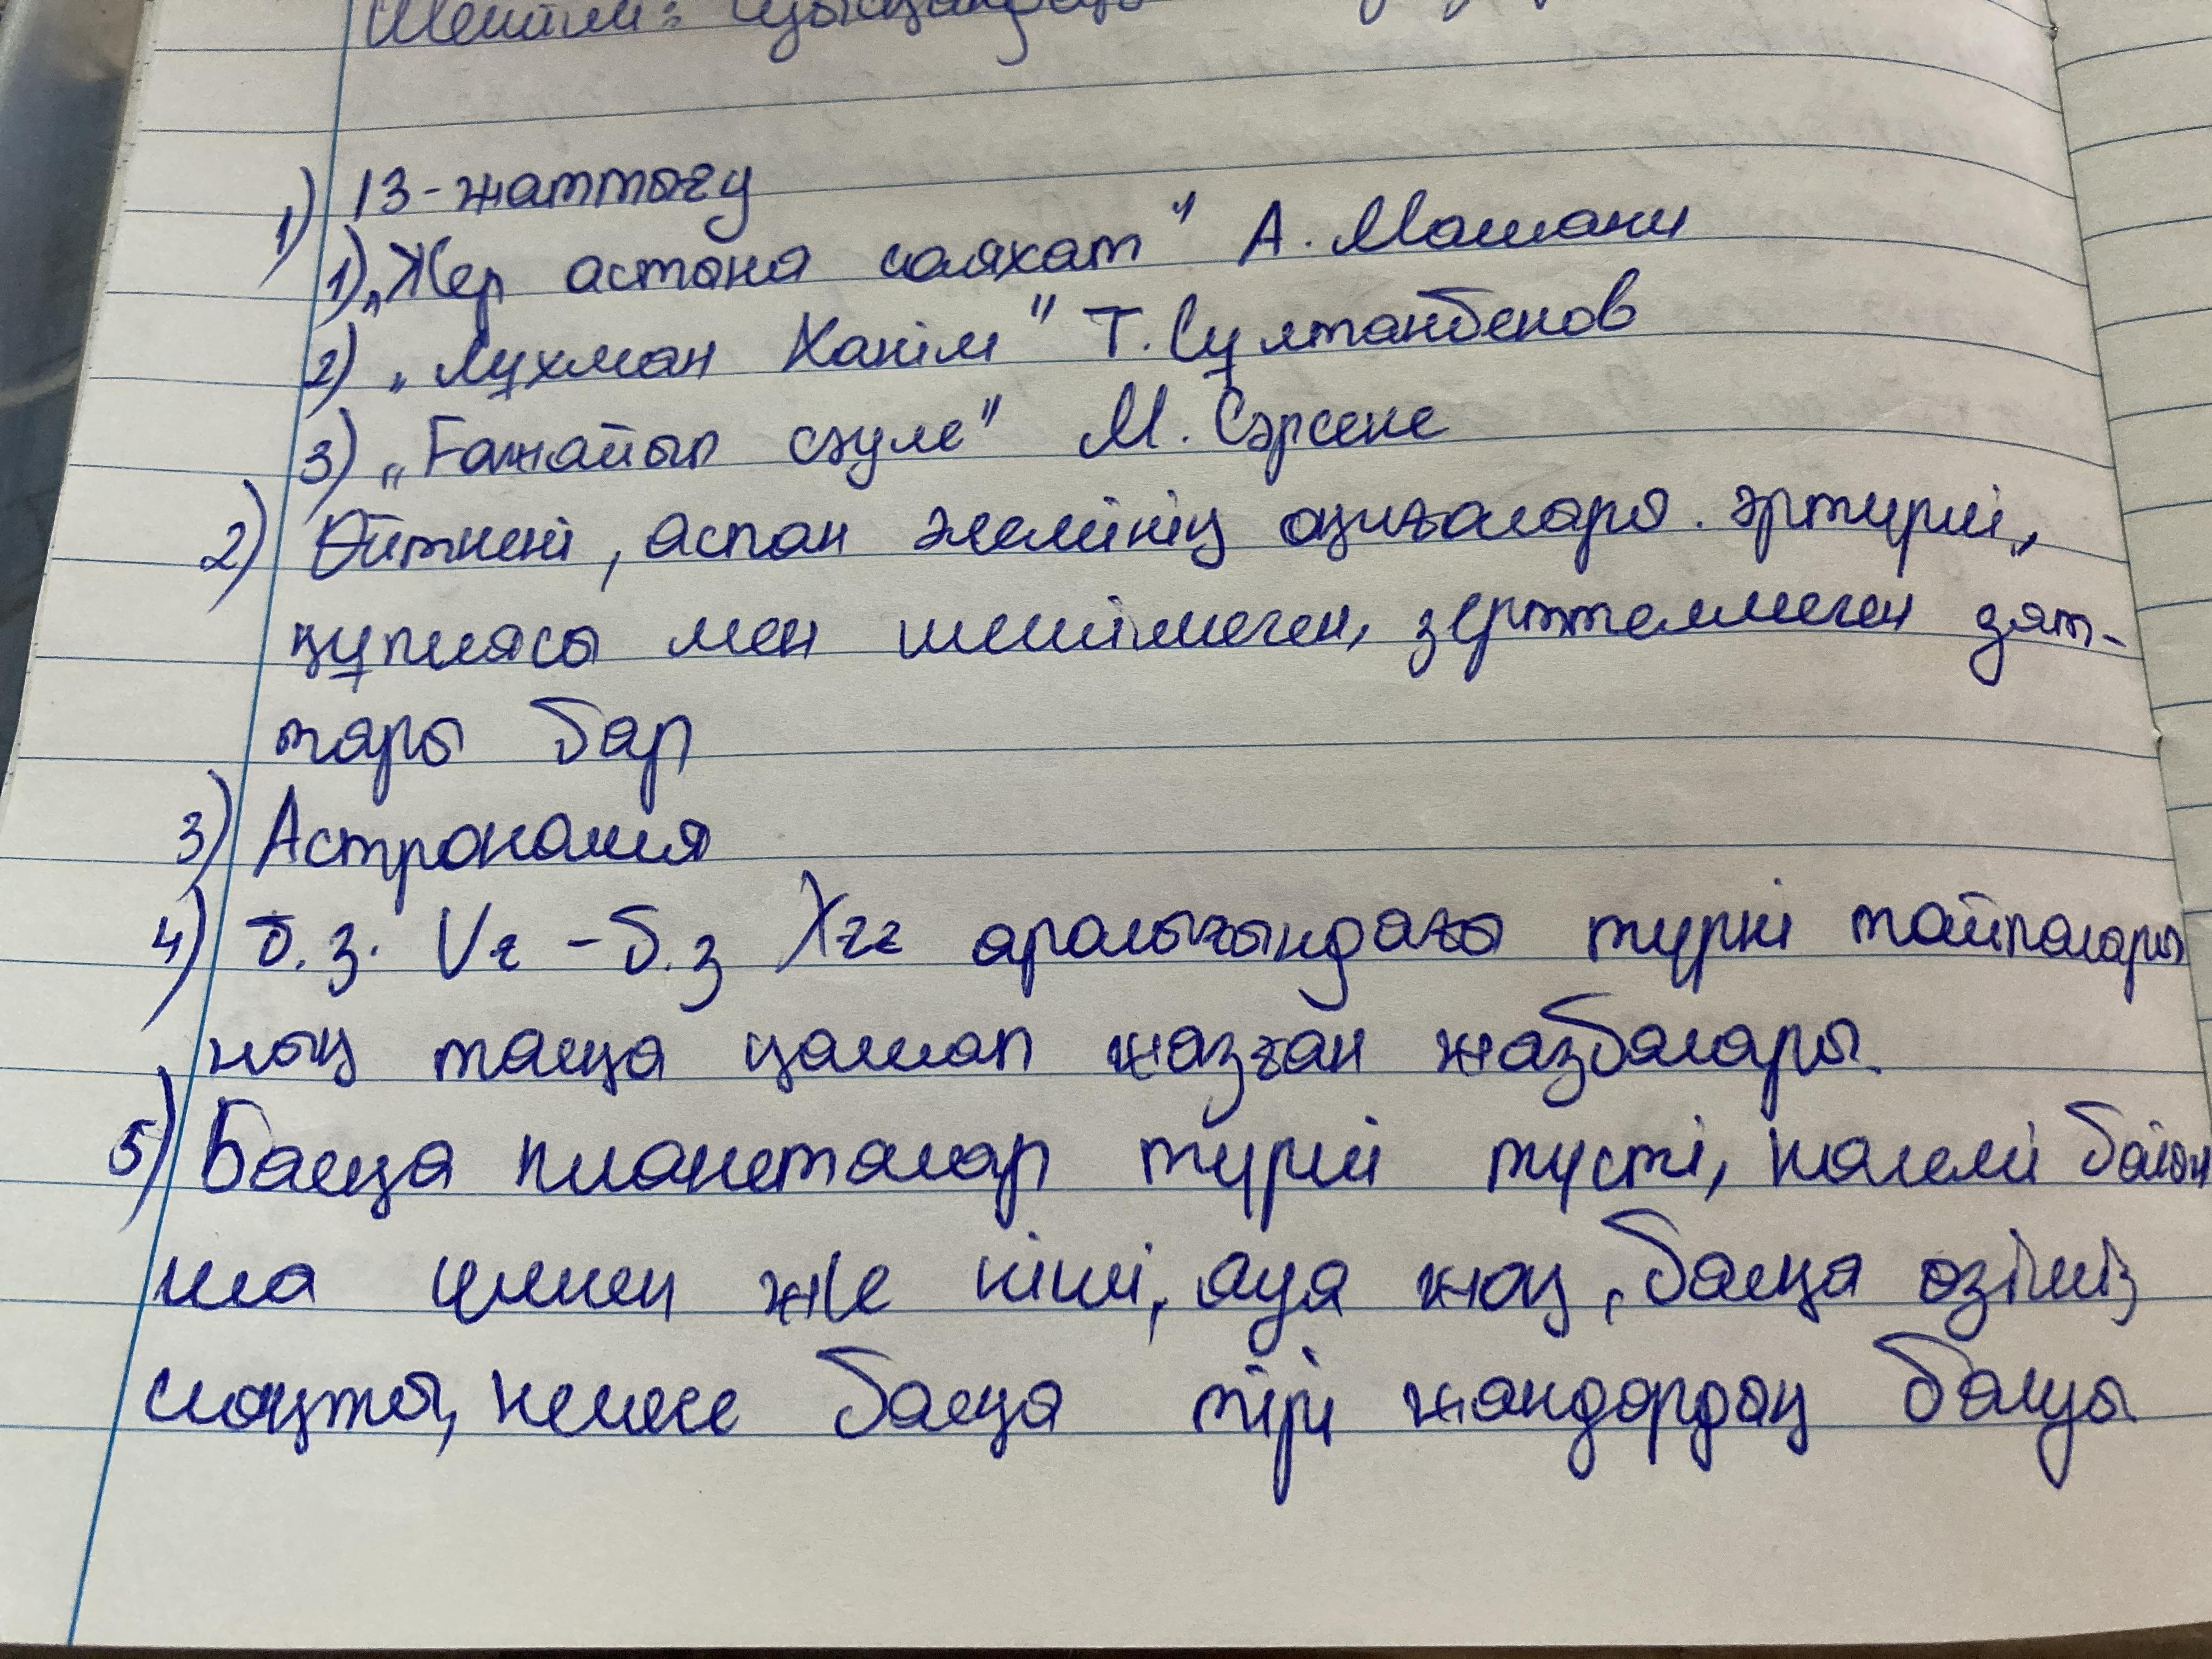 Шешім:
1) 13-жаттығу
1) „Жер астына саяхат" А. Машани
2) „Лұхман Хакім" Т. Сұлтанбеков
3) „Ғажайып сәуле" М. Сәрсеке
2) Өйткені, аспан әлемінің оқиғалары әртүрлі,
құпиясы мен шешілмеген, зерттелмеген зат-
тары бар
3) Астрономия
4) б.з. Vғ - б.з Xғғ аралығындағы түркі тайпалары
ның тасқа қашап жазған жазбалары.
5) Басқа планеталар түрлі түсті, көлемі бойын
ша үлкен же кіші, ауа жоқ, басқа өзіміз
сияқты, немесе басқа тірі жандардың болуы.